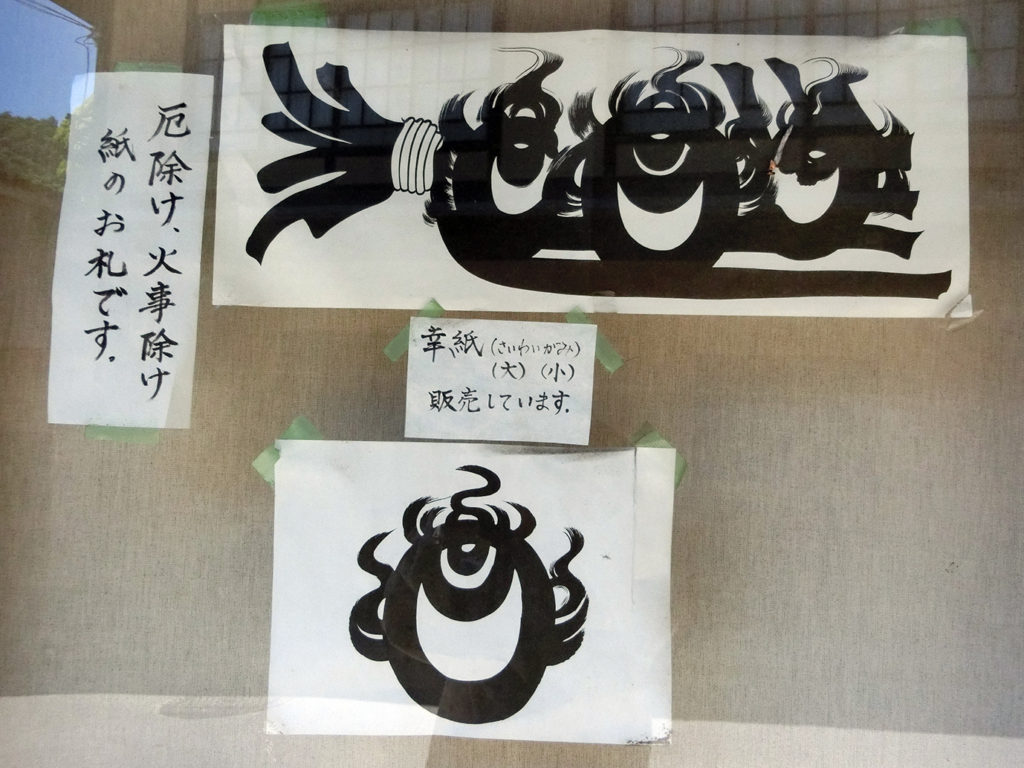 厄除け、火事除け
紙のお札です.
幸紙(さいわいがみ)
(大)(小)
販売しています.